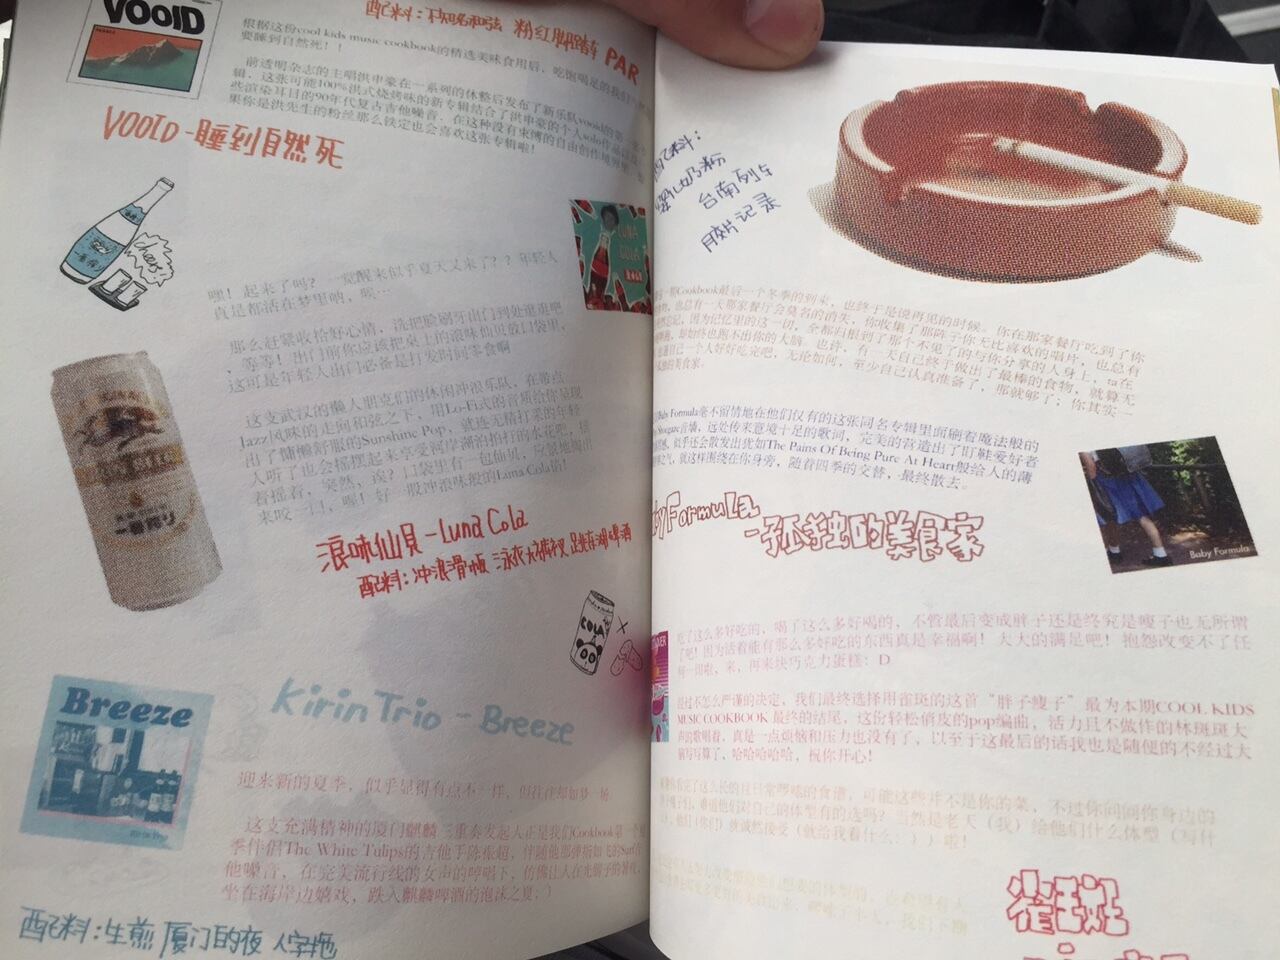 VOOID
配料：不知名和弦 粉红脚踏车 PAR
根据这份cool kids music cookbook的精选美味食用后，吃饱喝足的我们
要睡到自然死！！
前透明杂志的主唱洪申豪在一系列的休整后发布了新乐队vooid的第一
辑，这张可能100%洪式烧烤味的新专辑结合了洪申豪的个人solo作品
些渲染耳目的90年代复古吉他噪音，在这种没有束缚的自由创作境
果你是洪先生的粉丝那么铁定也会喜欢这张专辑啦！
VOOID-睡到自然死
cheers!
LUNA COLA
嘿！起来了吗？一觉醒来似乎夏天又来了？？年轻人
真是都活在梦里呐，唉…
那么赶紧收拾好心情，洗把脸刷牙出门到处逛逛吧
，等等！出门前你应该把桌上的浪味仙贝放口袋里，
这可是年轻人出门必备是打发时间零食啊
这支武汉的懒人朋克们的休闲冲浪乐队，在带点
Jazz风味的走向和弦之下，用Lo-Fi式的音质给你呈现
出了慵懒舒服的Sunshine Pop，就连无精打采的年轻
人听了也会摇摆起来享受河岸潮汐拍打的水花吧，摇
着摇着，突然，诶？口袋里有一包仙贝，应景地掏出
来咬一口，喔！好一股冲浪味般的Luna Cola佑！
浪味仙贝-Luna Cola
配料：冲浪滑板 泳衣大裤衩 跳东湖 啤酒
一番搾り
COLA
Breeze
Kirin Trio - Breeze
迎来新的夏季，似乎显得有点不一样，但往往却如梦一场
这支充满精神的厦门麒麟三重奏发起人正是我们Cookbook第一
季伴侣The White Tulips的吉他手陈张超，伴随他那弹指如飞的Surf吉
他噪音，在完美流行线的女声的哼唱下，仿佛让人在光脚子的暑夜，
坐在海岸边嬉戏，跌入麒麟啤酒的泡沫之夏:')
配料：生煎 厦门的夜 人字拖
配料：
婴儿奶粉
台南列车
胶片记录
Cookbook最后一个冬季的到来，也终于是说再见的时候。你在那家餐厅吃到了你
食物，也总有一天那家餐厅会莫名的消失，你收集了那阵子你无比喜欢的唱片，也总有
忘记，因为记忆里的这一切，全都归根到了那个不见了的与你分享的人身上，ta在
却始终也跑不出你的大脑。也许，有一天自己终于做出了最棒的食物，就算无
自己一个人好好吃完吧，无论如何，至少自己认真准备了，那就够了；你其实一
的美食家。
Baby Formula毫不留情地在他们仅有的这张同名专辑里面刷着魔法般的
Shoegaze音墙，远处传来意境十足的歌词，完美的营造出了盯鞋爱好者
似乎还会散发出犹如The Pains Of Being Pure At Heart般给人的薄
之气，就这样围绕在你身旁，随着四季的交替，最终散去。
Baby Formula
-孤独的美食家
Baby Formula
吃了这么多好吃的，喝了这么多好喝的，不管最后变成胖子还是终究是瘦子也无所谓
了吧！因为活着能有那么多好吃的东西真是幸福啊！大大的满足吧！抱怨改变不了任
何一切啦，来，再来块巧克力蛋糕：D
经过不怎么严谨的决定，我们最终选择用雀斑的这首“胖子瘦子”最为本期COOL KIDS
MUSIC COOKBOOK 最终的结尾，这份轻松俏皮的pop编曲，活力且不做作的林斑斑大
声的歌唱着，真是一点烦恼和压力也没有了，以至于这最后的话我也是随便的不经过大
脑写写算了，哈哈哈哈哈，祝你开心！
完了这么长的且日常啰嗦的食谱，可能这些并不是你的菜，不过你问问你身边的
子们，难道他们对自己的体型有的选吗？当然是老天（我）给他们什么体型（写什
），他们（你们）就诚然接受（就给我看什么：））啦！
雀斑